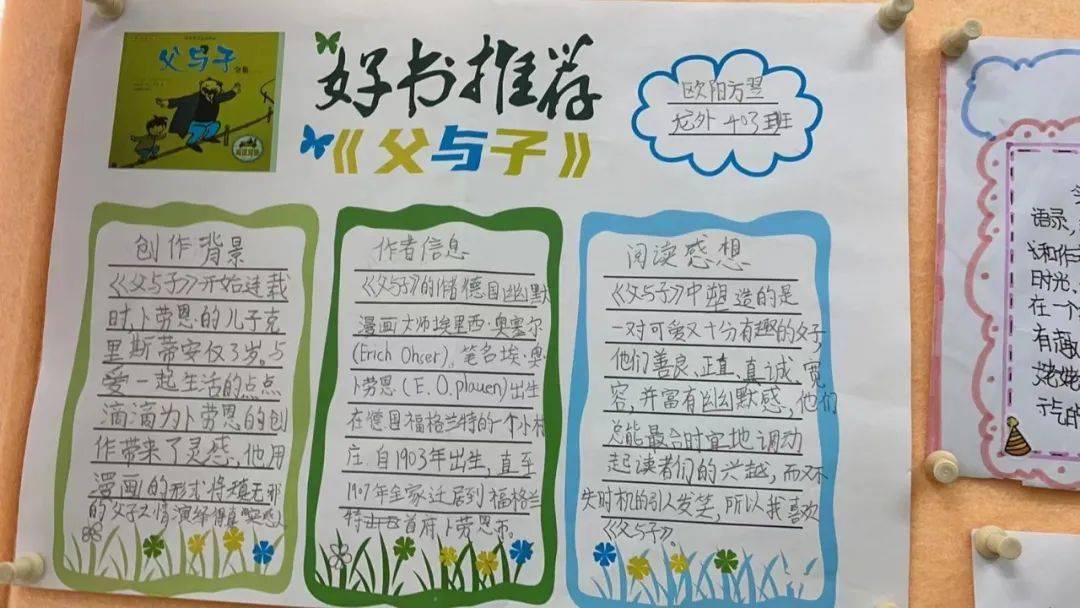 父与子
全集
好书推荐
《父与子》
欧阳方翌
龙外 403班
创作背景
《父与子》开始连载
时,卜劳恩的儿子克
里斯蒂安仅3岁。与
爱一起生活的点点
滴滴为卜劳恩的创
作带来了灵感,他用
漫画的形式将无邪
的父子之情演绎得
作者信息
《父与子》的作者德国幽默
漫画大师埃里西·奥塞尔
(Erich Ohser),笔名埃·奥·
卜劳恩(E.O.plauen)出生
在德国福格兰特的一个小村
庄.自1903年出生,直至
1907年全家迁居到福格兰
特首府卜劳恩市。
阅读感想
《父与子》中塑造的是
一对可爱又十分有趣的父子
他们善良、正直、真诚、宽
容,并富有幽默感,他们
总能最合时宜地调动
起读者们的兴趣,而又不
失时机的引人发笑,所以我喜欢
《父与子》。
语录,
时光、
在一个
有趣
姥姥